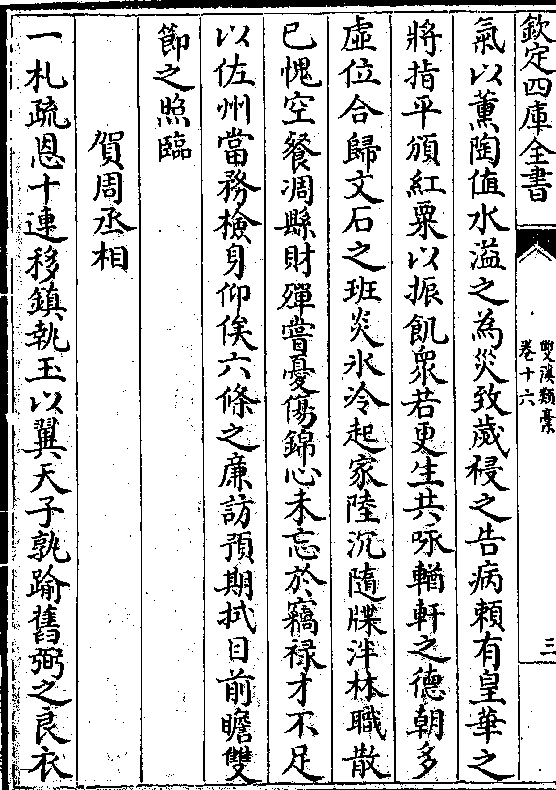 欽定四庫全書
雙溪類稾
卷十六
三
氣以薫陶值水溢之為災致歲祲之告病頼有皇華之
將指平頒紅粟以振飢衆若更生共咏輶軒之德朝多
虛位合歸文石之班炎氷冷起家陸沉隨牒泮林職散
已愧空餐凋縣財殫嘗憂傷錦心未忘於竊禄才不足
以佐州當務檢身仰俟六條之廉訪預期拭目前瞻雙
節之照臨
賀周丞相
一札疏恩十連移鎮執玉以翼天子孰踰舊弼之良衣